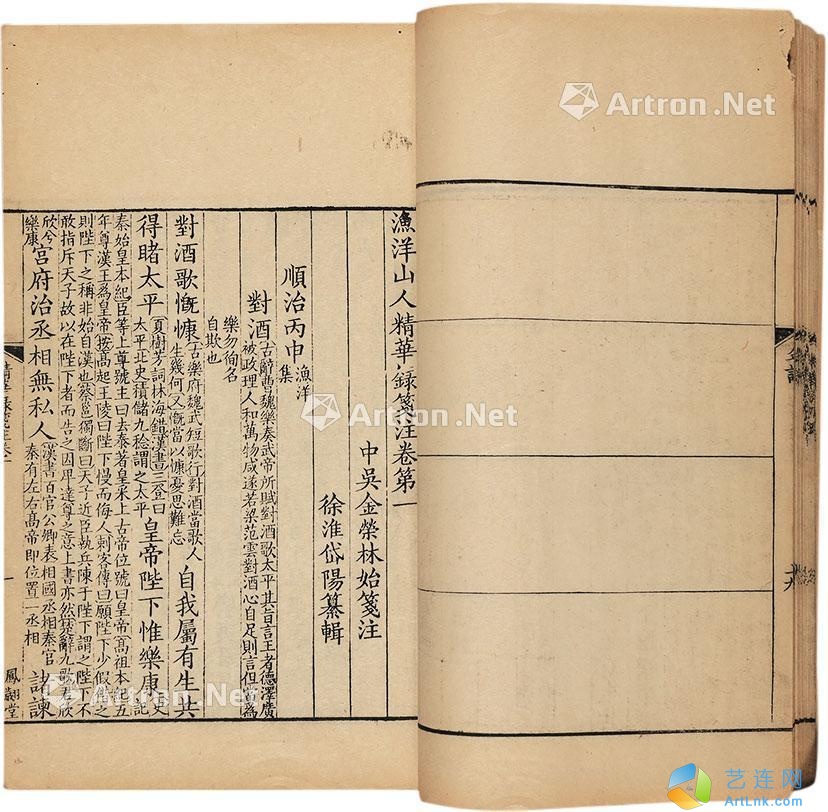 漁洋山人精華録箋注卷第一
中吳金榮林始箋注
徐淮岱陽纂輯
順治丙申
漁洋
集
對酒
古辭曹魏樂奏武帝所賦對酒歌太平其旨言王者德澤廣
被政理人和萬物咸遂若梁范雲對酒心自足則言但當為
樂勿徇名
自欺也
對酒歌慨慷
古樂府魏武短歌行對酒當歌人
生幾何又慨當以慷憂思難忘
自我屬有生共
得睹太平
夏樹芳詞林海錯漢書三登曰
太平北史積儲九稔謂之太平
皇帝陛下惟樂康
史
記
秦始皇本紀臣等上尊號王曰去泰著皇采上古帝位號曰皇帝高祖本紀五
年尊漢王爲皇帝按高起王陵曰陛下慢而侮人刺客傳曰願陛下少假借之
則陛下之稱非始自漢也蔡邕獨斷曰天子近臣執兵陳于陛下謂之陛下不
敢指斥天子故以在陛下者而告之因卑達尊之意上書亦然楚辭九歌君欣
欣兮
樂康
宫府治丞相無私人
漢書百官公卿表相國丞相秦官
秦有左右高帝即位置一丞相
諫
精華録箋注卷一
一
鳳翽堂
Artron.Net
Artron.Net
Artron.Net
艺连网
ArtLnk.com